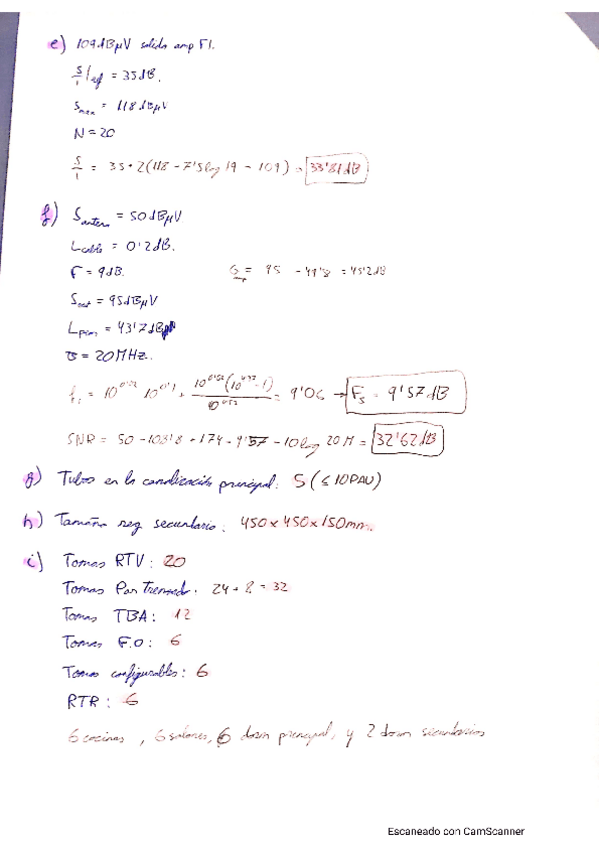 e) 109 dBµV salida amp FI.
S/I|ref = 35 dB.
Smax = 118 dBµV
N = 20
S/I = 35 + 2(118 - 7'5 log 19 - 109) = 33'81 dB
f) Santena = 50 dBµV
Lcable = 0'2 dB.
F = 9 dB.
G = 95 - 49'8 = 45'2 dB
Sout = 95 dBµV
= 43'7 dBµV
B = 20 MHz.
= 9'06 → Fs = 9'57 dB
SNR = 50 - 108'8 + 174 - 9'57 - 10 log 20 M = 32'62 dB
g) Tubos en la canalización principal: 5 (≤ 10 PAU)
h) Tamaño reg secundario: 450 x 450 x 150 mm.
i) Tomas RTV: 20
Tomas Par Trenzado. 24 + 8 = 32
Tomas TBA: 12
Tomas F.O: 6
Tomas configurables: 6
RTR: 6
6 cocinas, 6 salones, 6 dorm principal, y 2 dorm secundarios
Escaneado con CamScanner